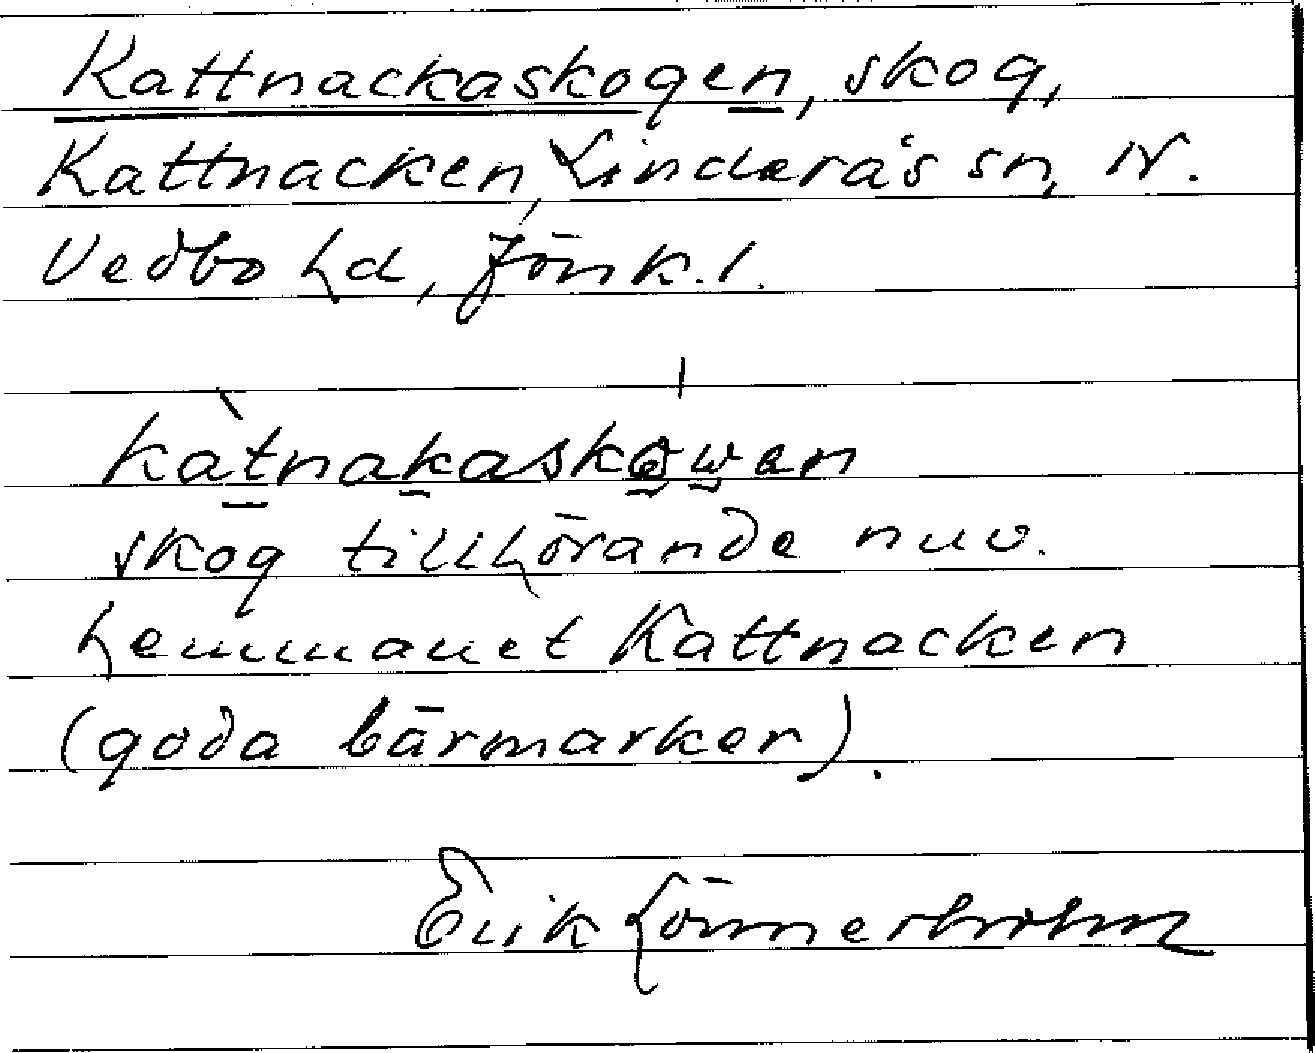 Kattnackaskogen, skog,
Kattnacken, Linderås sn, N.
Vedbo hd, Jönk. l.
kàtnakaskowen
skog tillhörande nuv.
hemmanet Kattnacken
(goda bärmarker).
Erik Lönnerholm